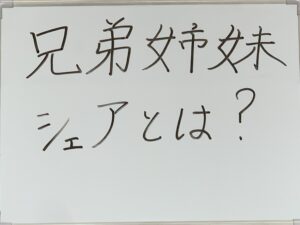 兄弟姉妹
シェアとは？